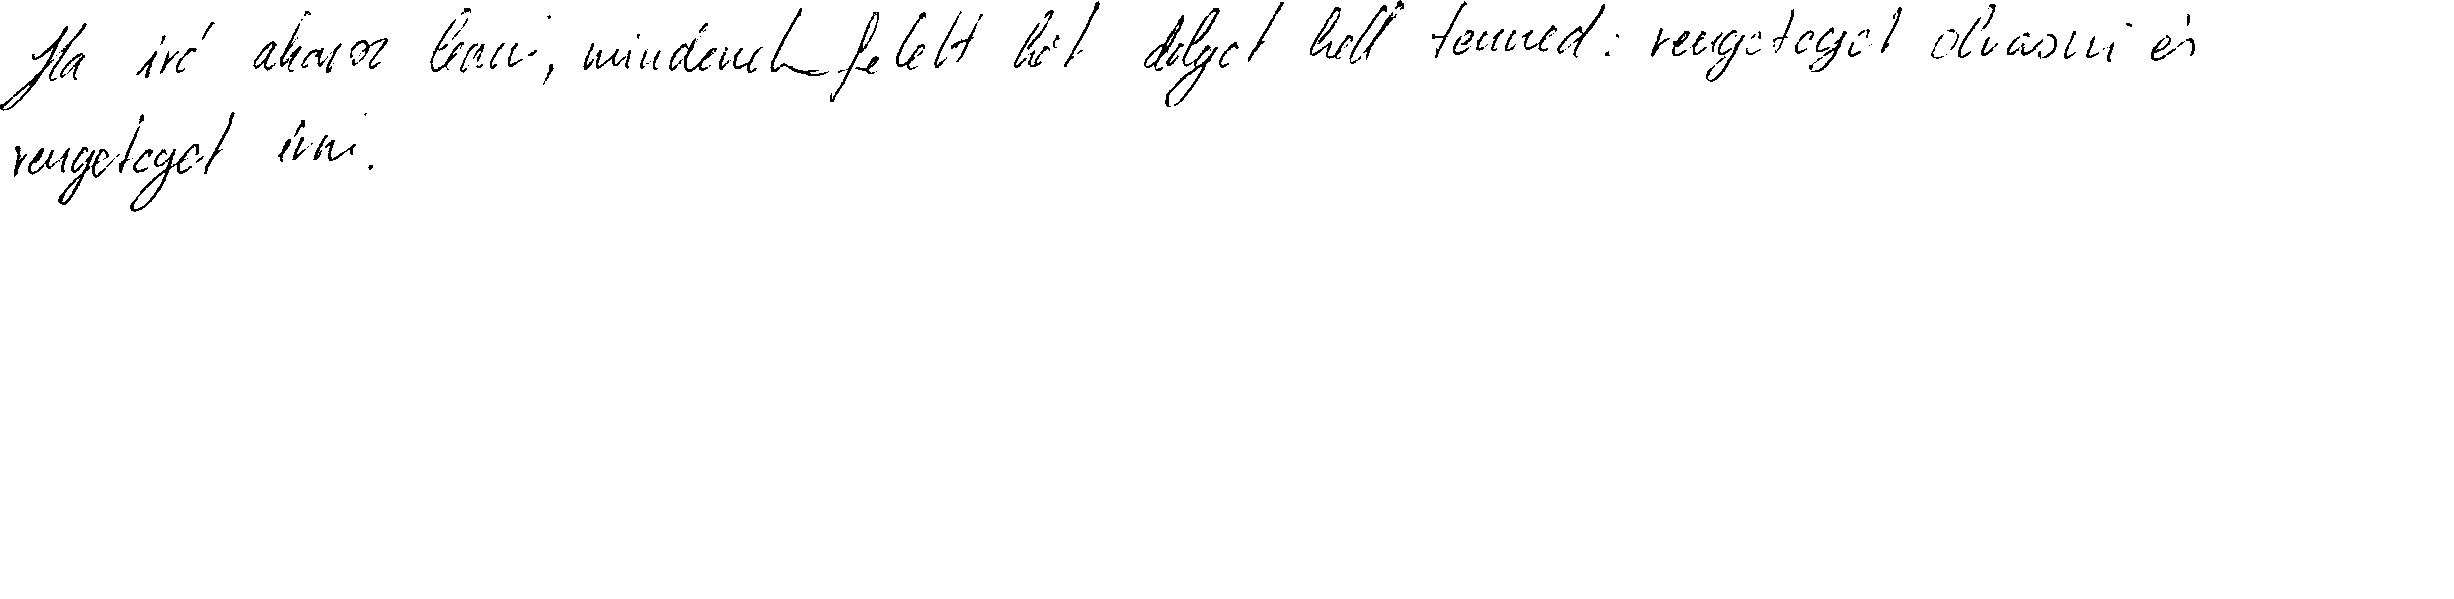 Ha író akarsz lenni, mindenek felett két dolgot kell tenned: rengeteget olvasni és
rengeteget írni.